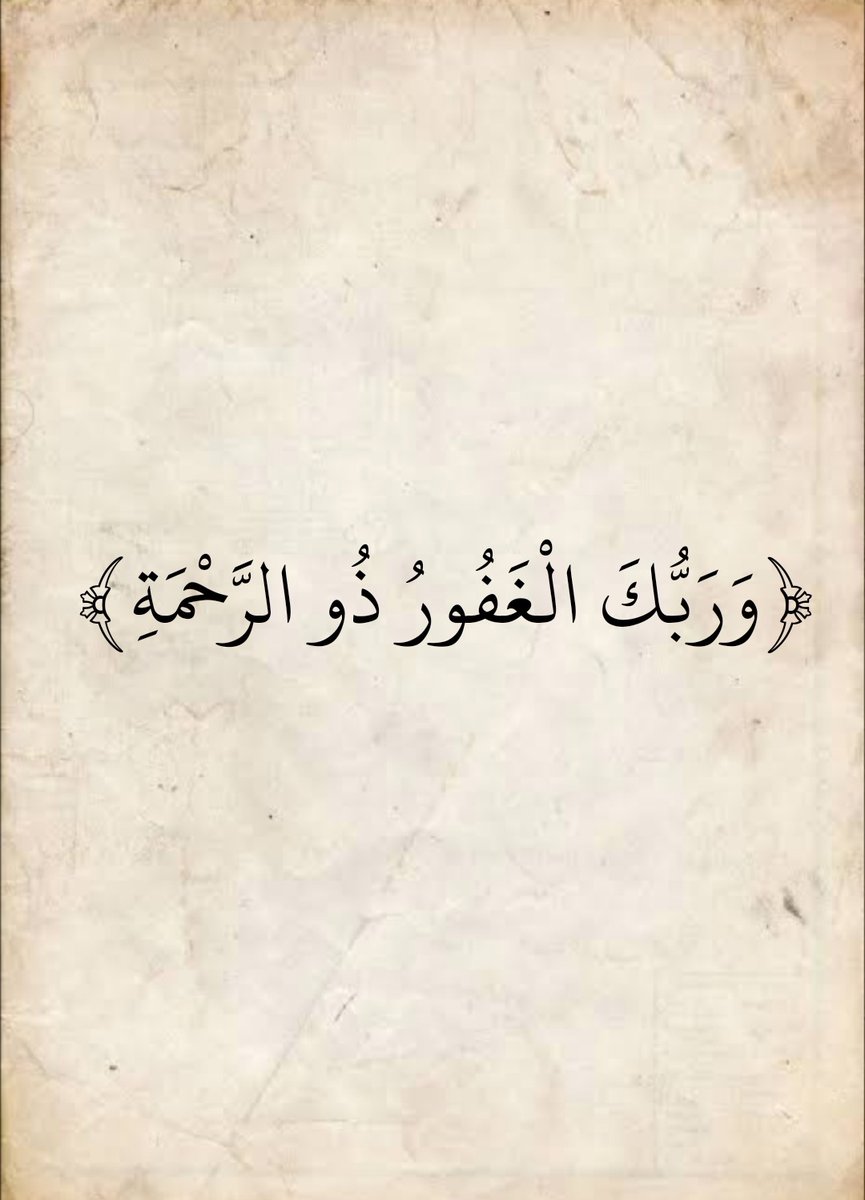 ﴿وَرَبُّكَ الْغَفُورُ ذُو الرَّحْمَةِ﴾